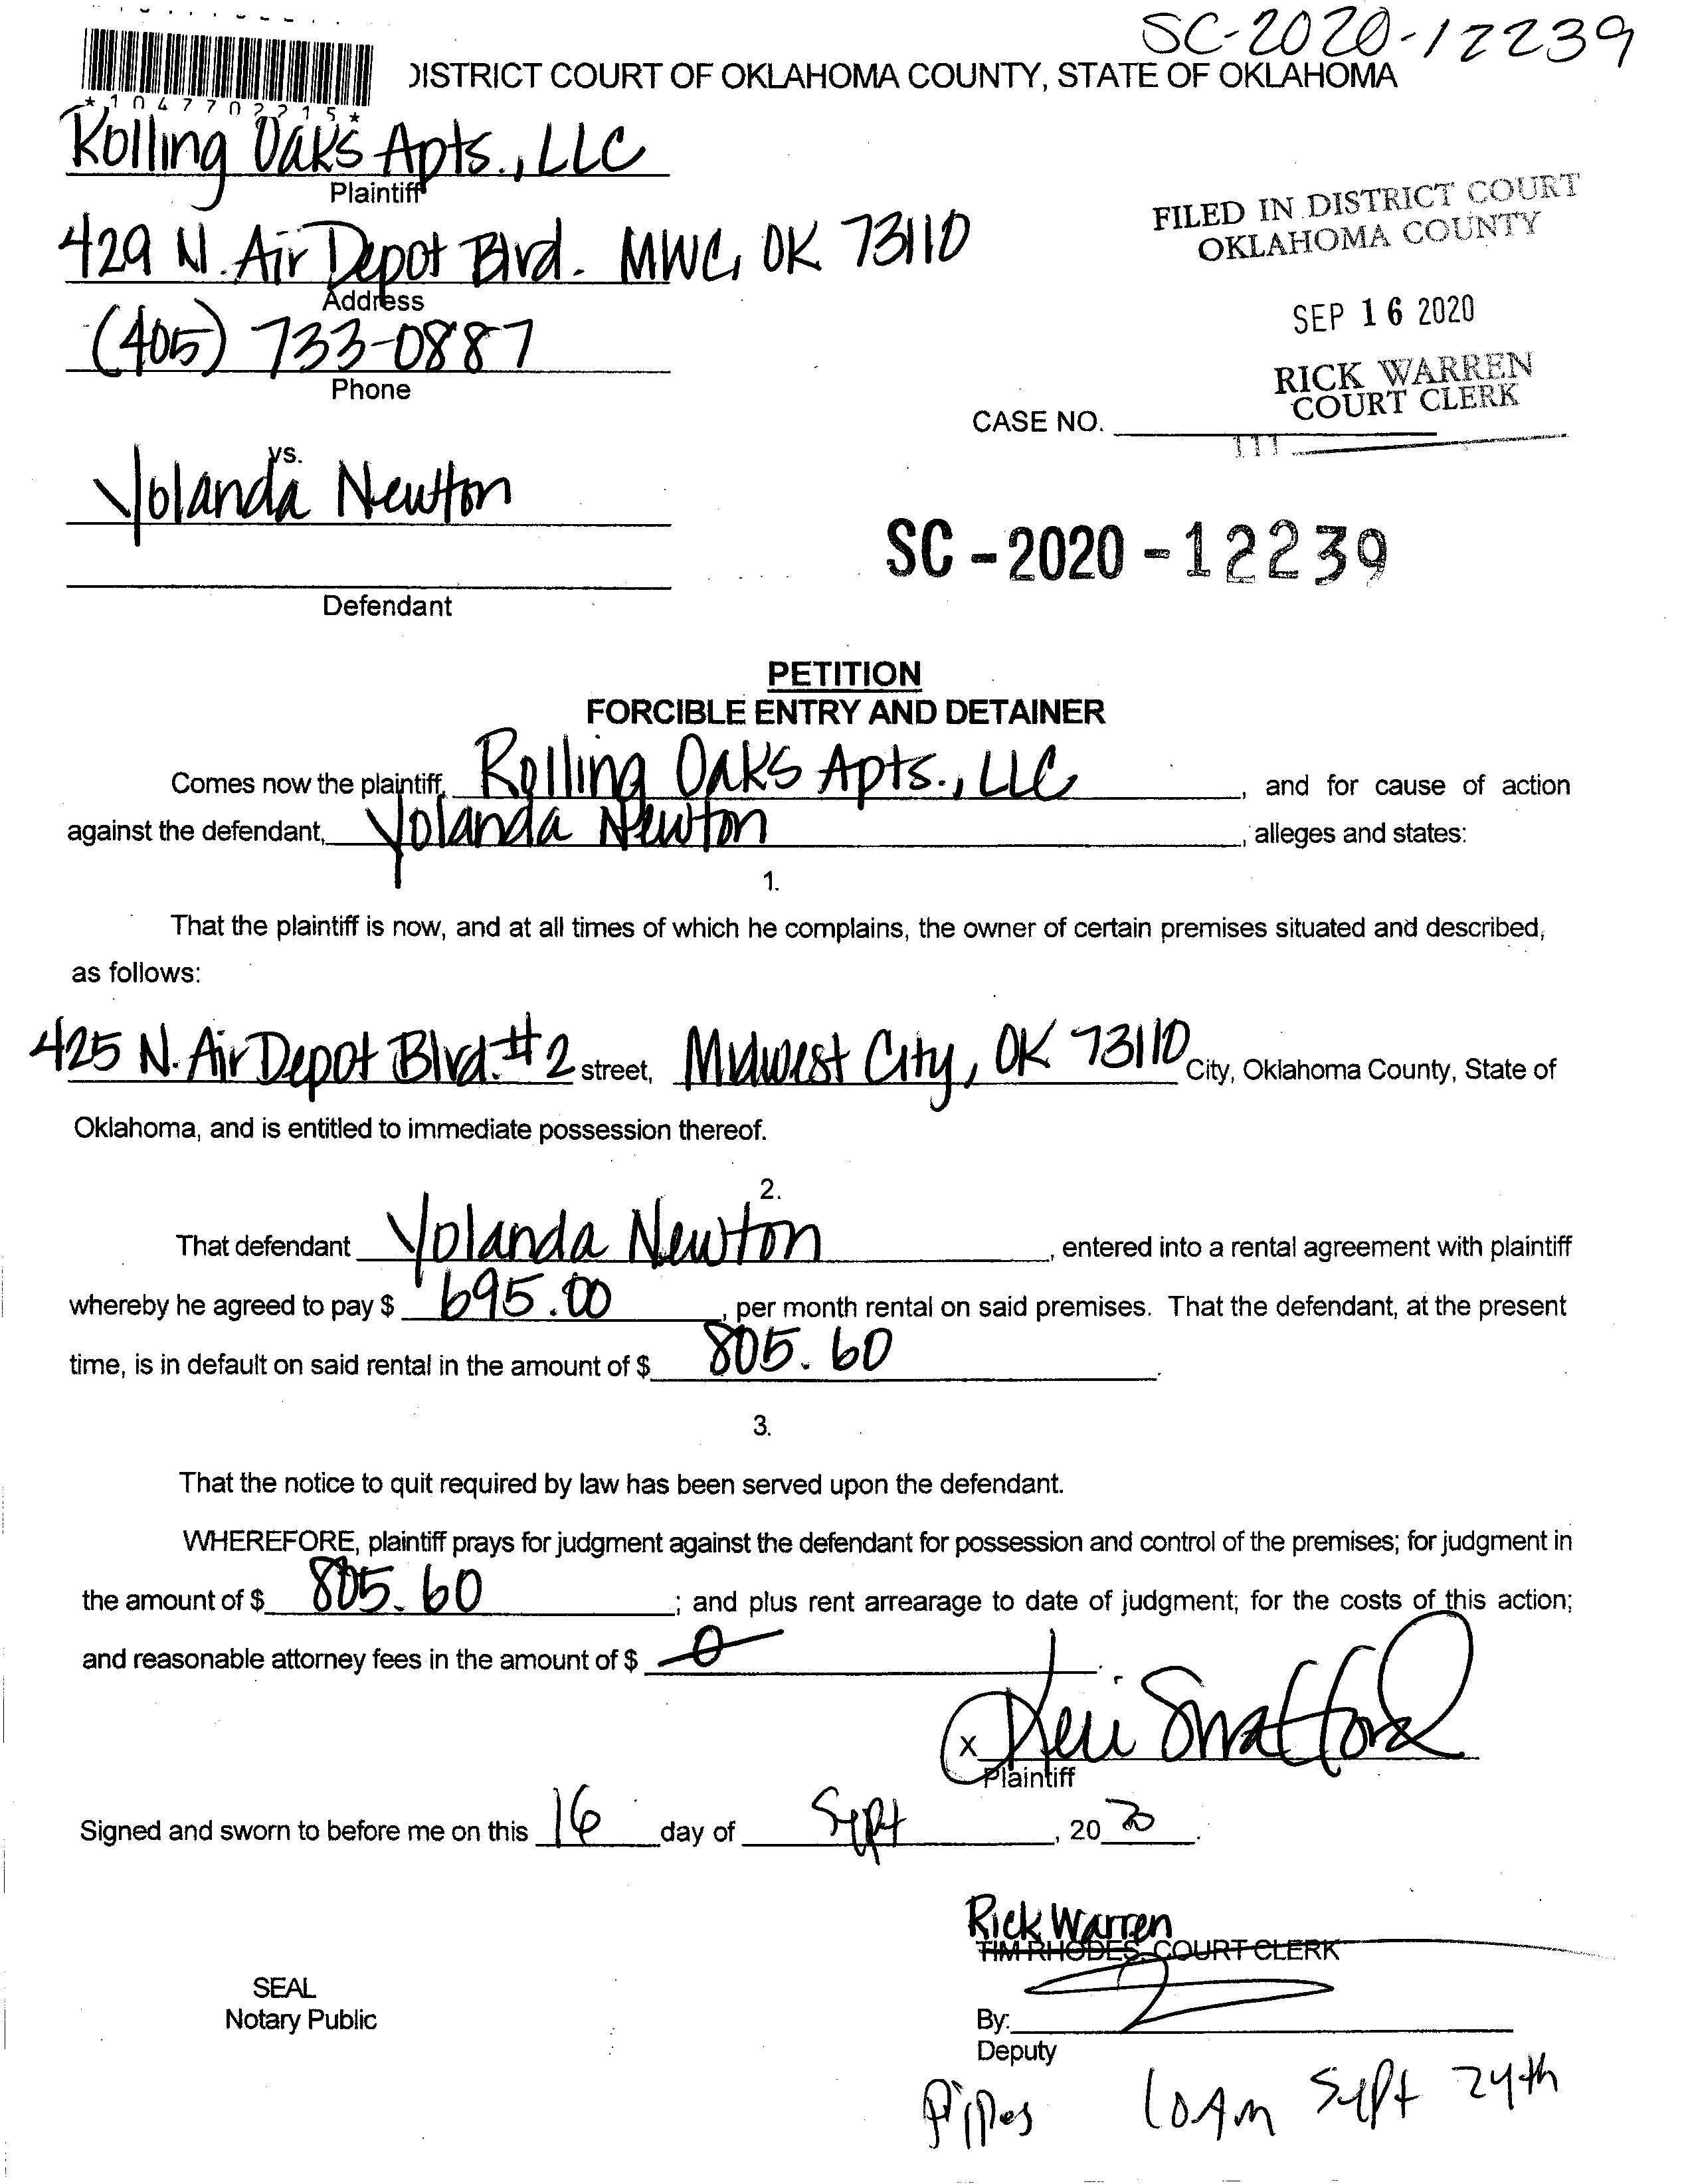 SC-2020-12239
DISTRICT COURT OF OKLAHOMA COUNTY, STATE OF OKLAHOMA
*1047702215*
Rolling Oaks Apts., LLC
Plaintiff
429 N. Air Depot Blvd. MWC, OK 73110
Address
(405) 733-0887
Phone
FILED IN DISTRICT COURT
OKLAHOMA COUNTY
SEP 16 2020
RICK WARREN
COURT CLERK
CASE NO.
111
vs.
Yolanda Newton
Defendant
SC-2020-12239
PETITION
FORCIBLE ENTRY AND DETAINER
Comes now the plaintiff, Rolling Oaks Apts., LLC, and for cause of action
against the defendant, Yolanda Newton, alleges and states:
1.
That the plaintiff is now, and at all times of which he complains, the owner of certain premises situated and described,
as follows:
425 N. Air Depot Blvd. #2 street, Midwest City, OK 73110 City, Oklahoma County, State of
Oklahoma, and is entitled to immediate possession thereof.
2.
That defendant Yolanda Newton, entered into a rental agreement with plaintiff
whereby he agreed to pay $ 695.00, per month rental on said premises. That the defendant, at the present
time, is in default on said rental in the amount of $ 805.60.
3.
That the notice to quit required by law has been served upon the defendant.
WHEREFORE, plaintiff prays for judgment against the defendant for possession and control of the premises; for judgment in
the amount of $ 805.60; and plus rent arrearage to date of judgment; for the costs of this action;
and reasonable attorney fees in the amount of $ 0.
x Keri Swafford
Plaintiff
Signed and sworn to before me on this 16 day of Sept, 20 20.
Rick Warren
TIM RHODES, COURT CLERK
SEAL
Notary Public
By:
Deputy
Pipes 10 Am Sept 24th